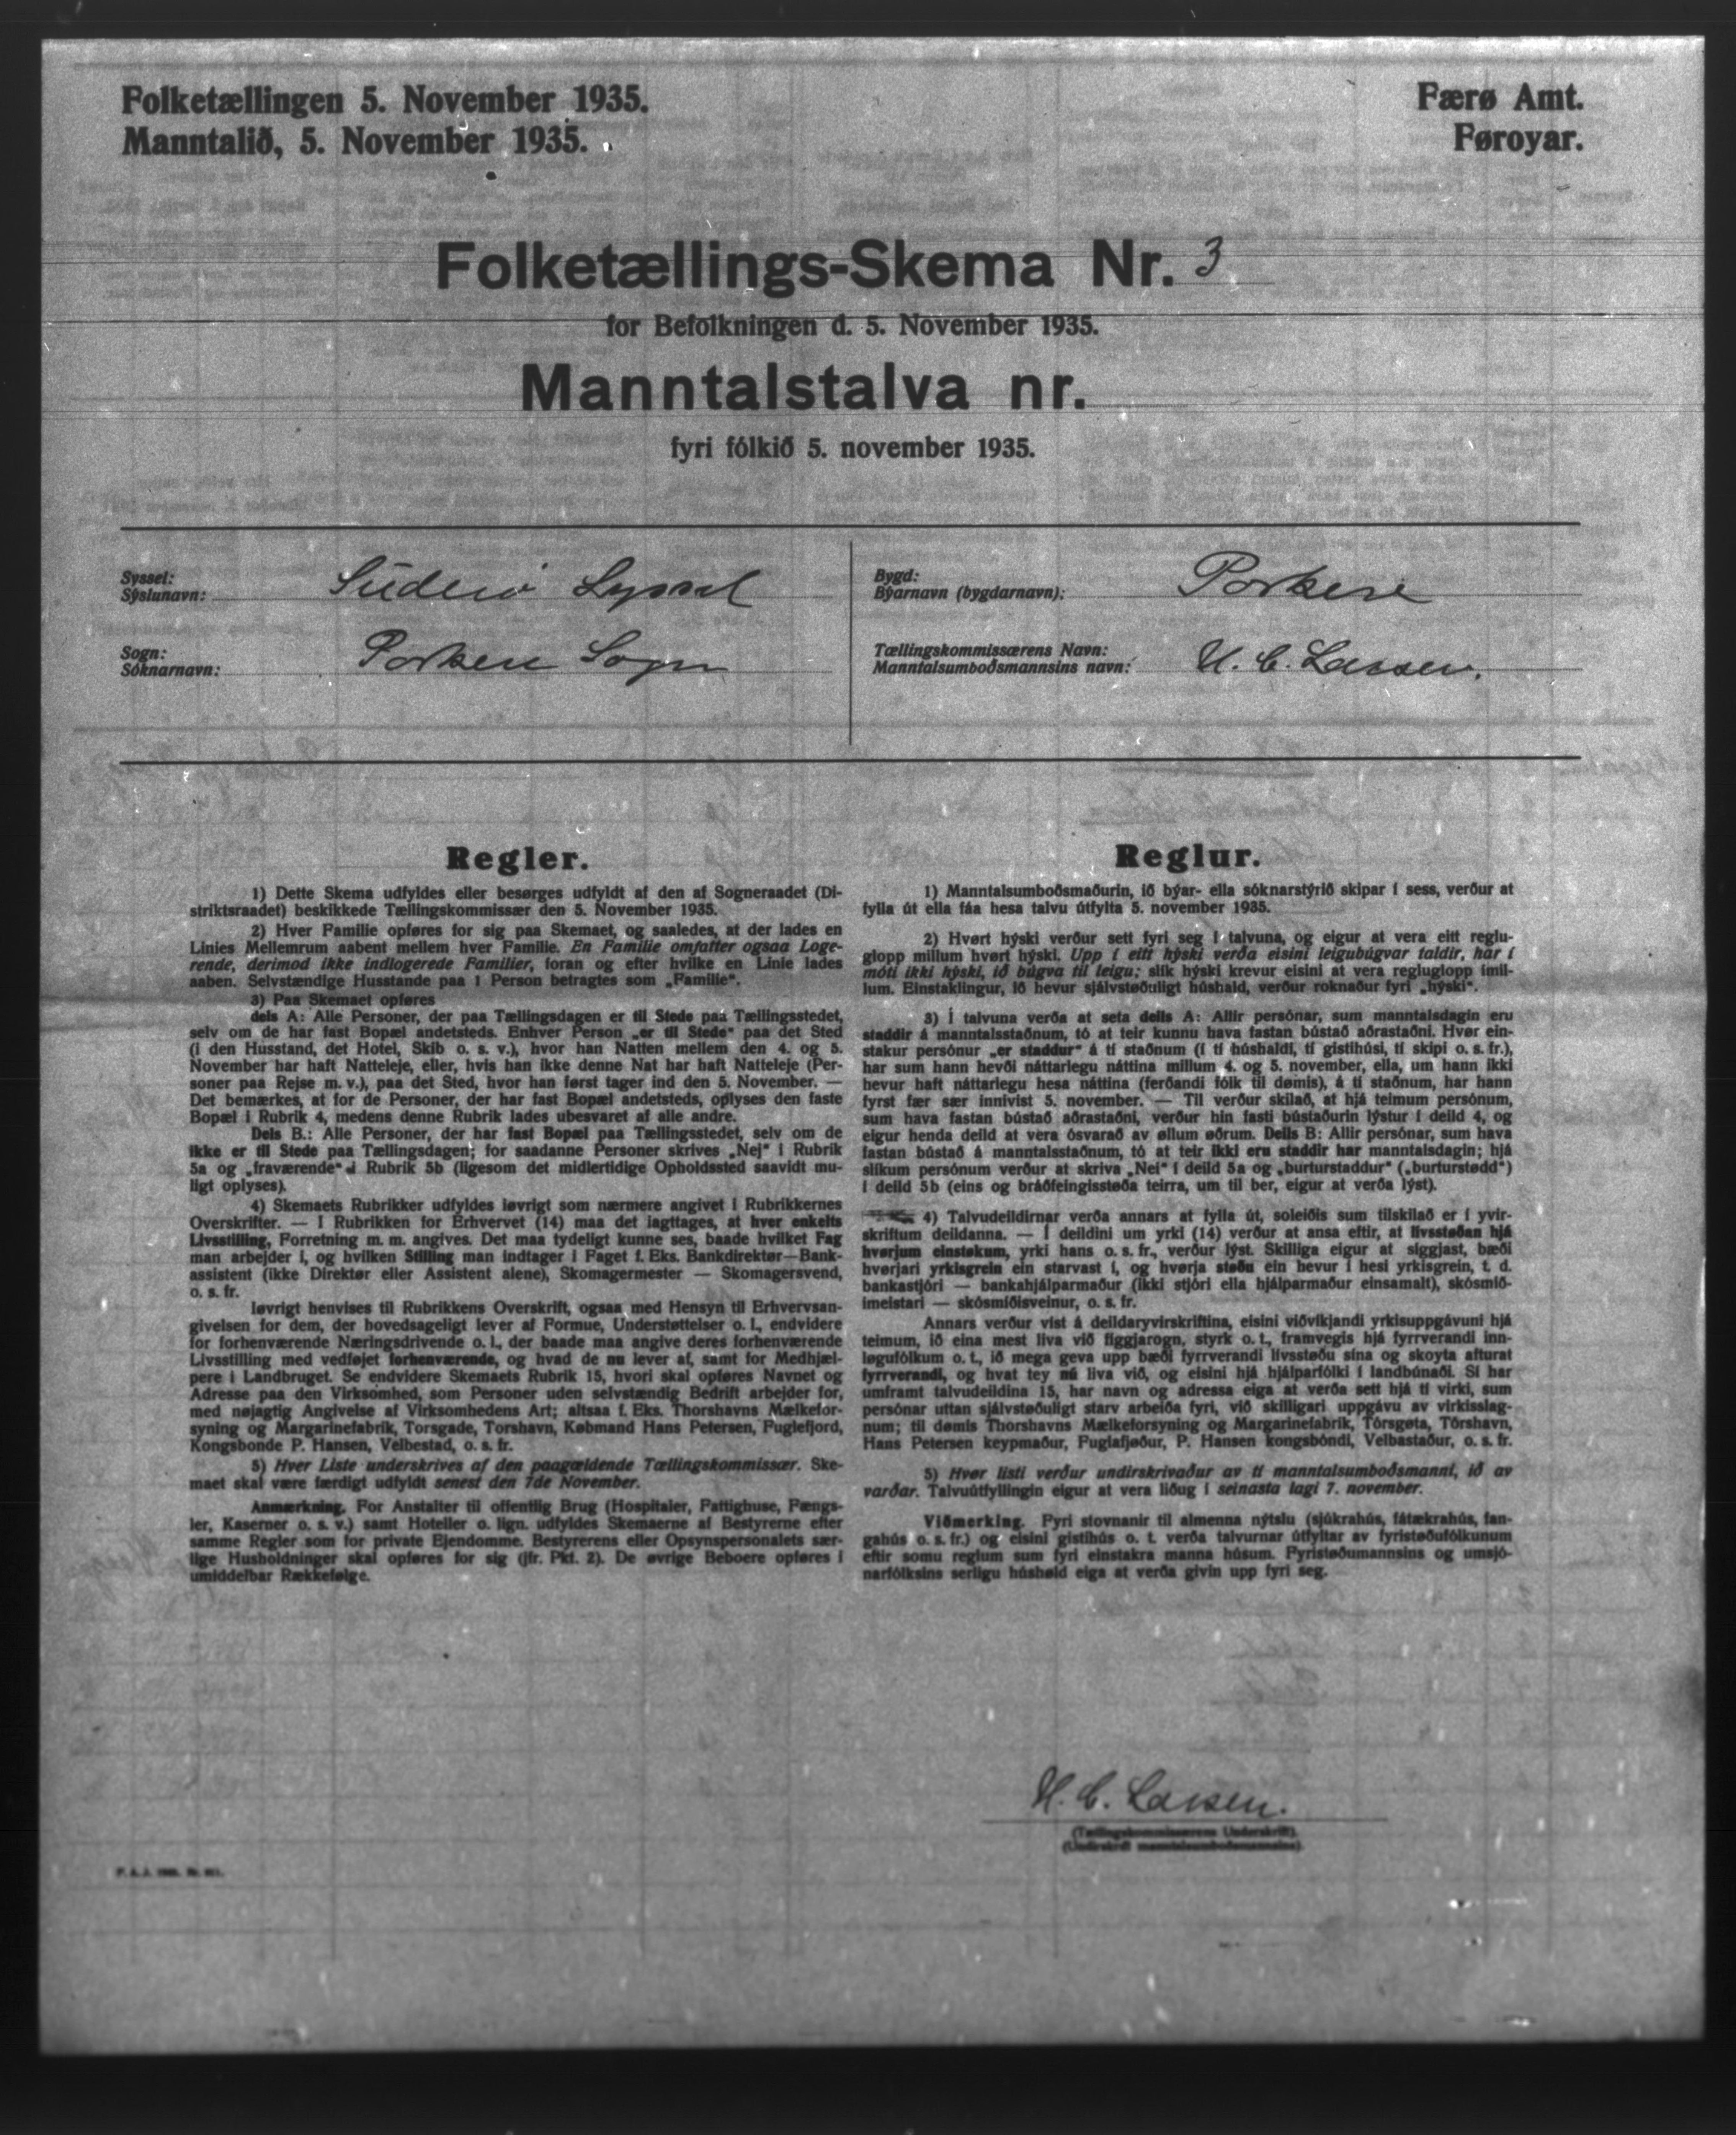 Folketællingen 5. November 1935.
Manntalið, 5. November 1935.
Færø Amt.
Føroyar.
Folketællings-Skema Nr. 3
for Befolkningen d. 5. November 1935.
Manntalstalva nr.
fyri fólkið 5. november 1935.
Syssel:
Sýslunavn:
Süderø Syssel
Sogn:
Sóknarnavn:
Porkere Sogn
Bygd:
Býarnavn (bygdarnavn):
Porkere
Tællingskommissærens Navn:
Manntalsumboðsmannsins navn:
H. C. Larsen.
Regler.
1) Dette Skema udfyldes eller besørges udfyldt af den af Sogneraadet (Di-
striktsraadet) beskikkede Tællingskommissær den 5. November 1935.
2) Hver Familie opføres for sig paa Skemaet, og saaledes, at der lades en
Linies Mellemrum aabent mellem hver Familie. En Familie omfatter ogsaa Loge-
rende, derimod ikke indlogerede Familier, foran og efter hvilke en Linie lades
aaben. Selvstændige Husstande paa 1 Person betragtes som „Familie“.
3) Paa Skemaet opføres
dels A: Alle Personer, der paa Tællingsdagen er til Stede paa Tællingsstedet,
selv om de har fast Bopæl andetsteds. Enhver Person „er til Stede“ paa det Sted
(i den Husstand, det Hotel, Skib o. s. v.), hvor han Natten mellem den 4. og 5.
November har haft Natteleje, eller, hvis han ikke denne Nat har haft Natteleje (Per-
soner paa Rejse m. v.), paa det Sted, hvor han først tager ind den 5. November. —
Det bemærkes, at for de Personer, der har fast Bopæl andetsteds, oplyses den faste
Bopæl i Rubrik 4, medens denne Rubrik lades ubesvaret af alle andre.
Dels B.: Alle Personer, der har fast Bopæl paa Tællingsstedet, selv om de
ikke er til Stede paa Tællingsdagen; for saadanne Personer skrives „Nej“ i Rubrik
5a og „fraværende“ i Rubrik 5b (ligesom det midlertidige Opholdssted saavidt mu-
ligt oplyses).
4) Skemaets Rubrikker udfyldes iøvrigt som nærmere angivet i Rubrikkernes
Overskrifter. — I Rubrikken for Erhvervet (14) maa det iagttages, at hver enkelts
Livsstilling, Forretning m. m. angives. Det maa tydeligt kunne ses, baade hvilket Fag
man arbejder i, og hvilken Stilling man indtager i Faget f. Eks. Bankdirektør—Bank-
assistent (ikke Direktør eller Assistent alene), Skomagermester — Skomagersvend,
o. s. fr.
Iøvrigt henvises til Rubrikkens Overskrift, ogsaa med Hensyn til Erhvervsan-
givelsen for dem, der hovedsageligt lever af Formue, Understøttelser o. l., endvidere
for forhenværende Næringsdrivende o. l., der baade maa angive deres forhenværende
Livsstilling med vedføjet forhenværende, og hvad de nu lever af, samt for Medhjæl-
pere i Landbruget. Se endvidere Skemaets Rubrik 15, hvori skal opføres Navnet og
Adresse paa den Virksomhed, som Personer uden selvstændig Bedrift arbejder for,
med nøjagtig Angivelse af Virksomhedens Art; altsaa f. Eks. Thorshavns Mælkefor-
syning og Margarinefabrik, Torsgade, Torshavn, Købmand Hans Petersen, Fuglefjord,
Kongsbonde P. Hansen, Velbestad, o. s. fr.
5) Hver Liste underskrives af den paagældende Tællingskommissær. Ske-
maet skal være færdigt udfyldt senest den 7de November.
Anmærkning. For Anstalter til offentlig Brug (Hospitaler, Fattighuse, Fængs-
ler, Kaserner o. s. v.) samt Hoteller o. lign. udfyldes Skemaerne af Bestyrerne efter
samme Regler som for private Ejendomme. Bestyrerens eller Opsynspersonalets sær-
lige Husholdninger skal opføres for sig (jfr. Pkt. 2). De øvrige Beboere opføres i
umiddelbar Rækkefølge.
Reglur.
1) Manntalsumboðsmaðurin, ið býar- ella sóknarstýrið skipar í sess, verður at
fylla út ella fáa hesa talvu útfylta 5. november 1935.
2) Hvørt hýski verður sett fyri seg í talvuna, og eigur at vera eitt reglu-
glopp millum hvørt hýski. Upp í eitt hýski verða eisini leigubúgvar taldir, har í
móti ikki hýski, ið búgva til leigu; slík hýski krevur eisini at vera regluglopp ímil-
lum. Einstaklingur, ið hevur sjálvstøðuligt húshald, verður roknaður fyri „hýski“.
3) Í talvuna verða at seta dells A: Allir persónar, sum manntalsdagin eru
staddir á manntalsstaðnum, tó at teir kunnu hava fastan bústað aðrastaðni. Hvør ein-
stakur persónur „er staddur“ á tí staðnum (í tí húshaldi, tí gistihúsi, tí skipi o. s. fr.),
har sum hann hevði náttarlegu náttina millum 4. og 5. november, ella, um hann ikki
hevur haft náttarlegu hesa náttina (ferðandi fólk til dømis), á tí staðnum, har hann
fyrst fær sær innivist 5. november. — Til verður skilað, at hjá teimum persónum,
sum hava fastan bústað aðrastaðni, verður hin fasti bústaðurin lýstur í deild 4, og
eigur henda deild at vera ósvarað av øllum øðrum. Dells B: Allir persónar, sum hava
fastan bústað á manntalsstaðnum, tó at teir ikki eru staddir har manntalsdagin; hjá
slíkum persónum verður at skriva „Nei“ í deild 5a og „burturstaddur“ („burturstødd“)
í deild 5b (eins og bráðfeingisstøða teirra, um til ber, eigur at verða lýst).
4) Talvudeildirnar verða annars at fylla út, soleiðis sum tilskilað er í yvir-
skriftum deildanna. — Í deildini um yrki (14) verður at ansa eftir, at livsstøðan hjá
hvørjum einstøkum, yrki hans o. s. fr., verður lýst. Skilliga eigur at siggjast, bæði
hvørjari yrkisgrein ein starvast í, og hvørja støðu ein hevur í hesi yrkisgrein, t. d.
bankastjóri — bankahjálparmaður (ikki stjóri ella hjálparmaður einsamalt), skósmið-
imeistari — skósmiðisveinur, o. s. fr.
Annars verður víst á deildaryvirskriftina, eisini viðvíkjandi yrkisuppgávuni hjá
teimum, ið eina mest liva við figgjarogn, styrk o. t., framvegis hjá fyrrverandi inn-
løgufólkum o. t., ið mega geva upp bæði fyrrverandi livsstøðu sína og skoyta afturat
fyrrverandi, og hvat tey nú liva við, og eisini hjá hjálparfólki í landbúnaði. Sí har
umframt talvudeildina 15, har navn og adressa eiga at verða sett hjá tí virki, sum
persónar uttan sjálvstøðuligt starv arbeiða fyri, við skilligari uppgávu av virkisslag-
num; til dømis Thorshavns Mælkeforsyning og Margarinefabrik, Tórsgøta, Tórshavn,
Hans Petersen keypmaður, Fuglafjøður, P. Hansen kongsbóndi, Velbastaður, o. s. fr.
5) Hvør listi verður undirskrivaður av tí manntalsumboðsmanni, ið av
varðar. Talvuútfyllingin eigur at vera liðug í seinasta lagi 7. november.
Viðmerking. Fyri stovnanir til almenna nýtslu (sjúkrahús, fátækrahús, fan-
gahús o. s. fr.) og eisini gistihús o. t. verða talvurnar útfyltar av fyristøðufólkunum
eftir somu reglum sum fyri einstakra manna húsum. Fyristøðumannsins og umsjó-
narfólksins serligu húshøld eiga at verða givin upp fyri seg.
H. C. Larsen.
(Tællingskommissærens Underskrift).
(Undirskrift manntalsumboðsmannsins).